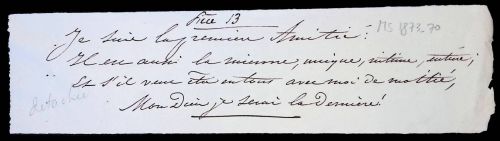 Pièce 13
MS 1873-70
Je suis la première Amitié !
Il eu aussi la mienne, unique, intime, entière ;
Et s'il veut être en tous avec moi de moitié,
Mon Dieu, je serai la Dernière !
détachée